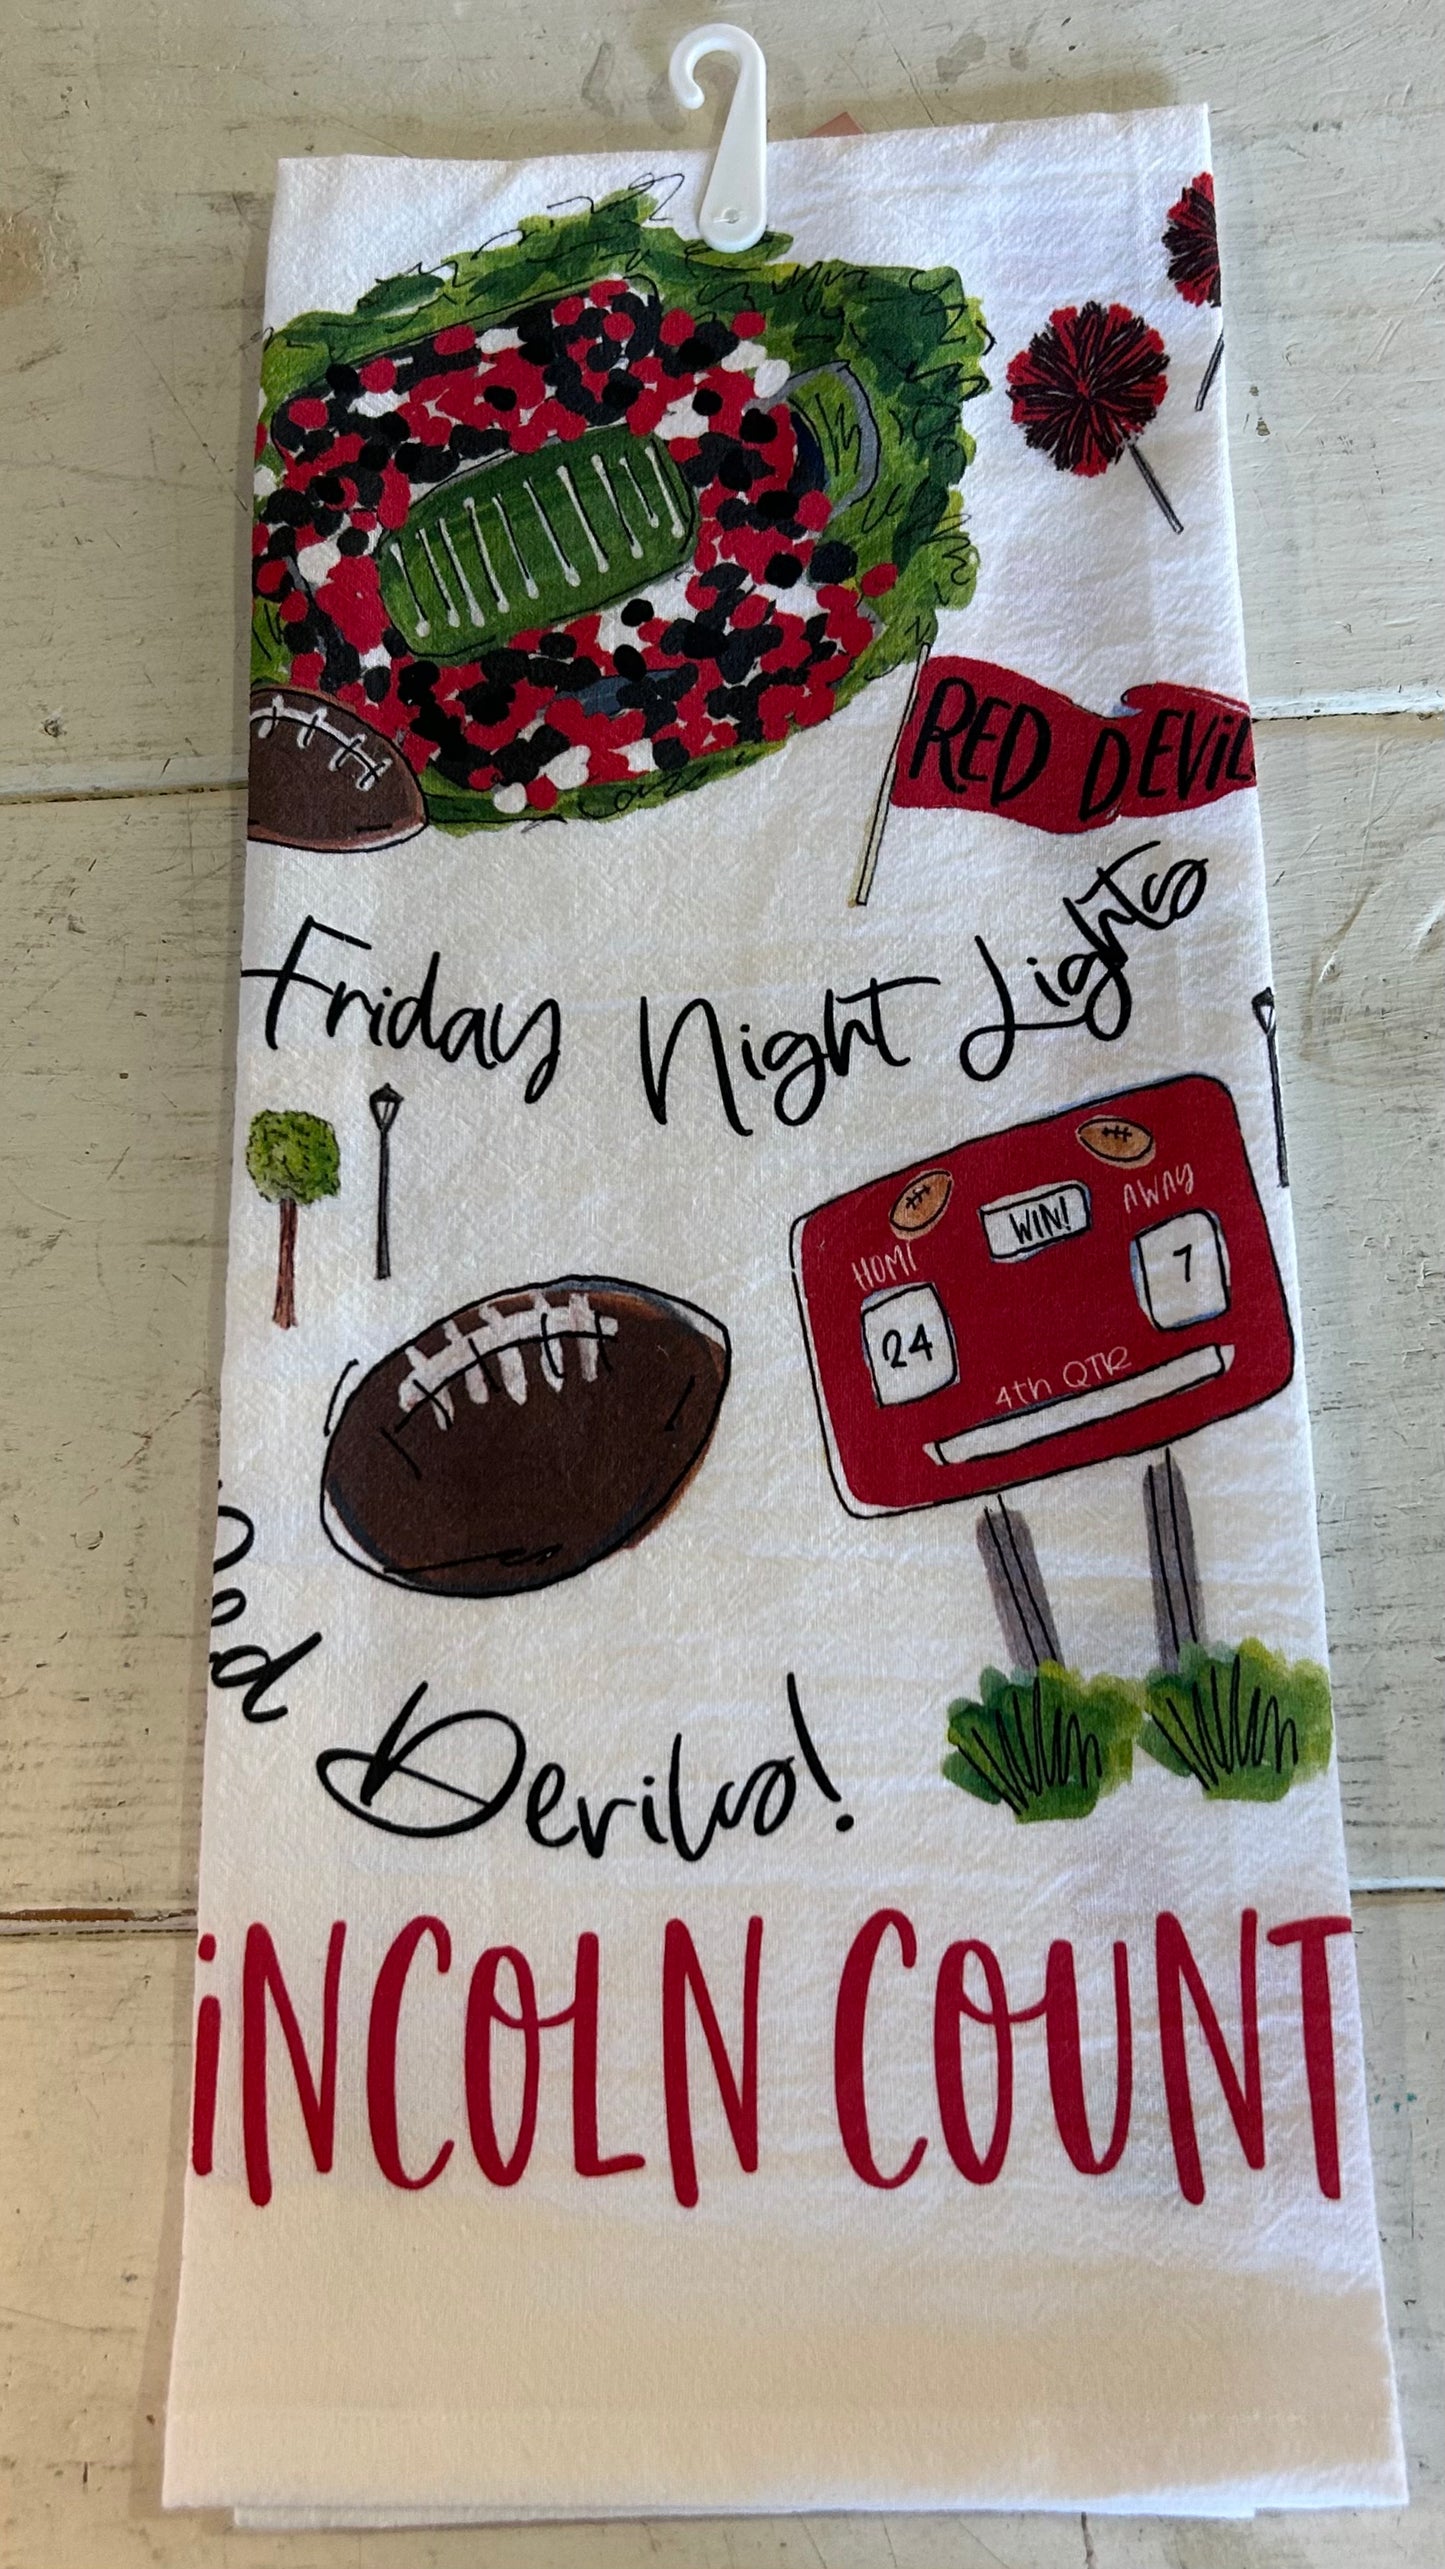 RED DEVIL
Friday Night Lights
WIN!
AWAY
HOME
7
24
4th QTR
Red
Devils!
iNCOLN COUNT